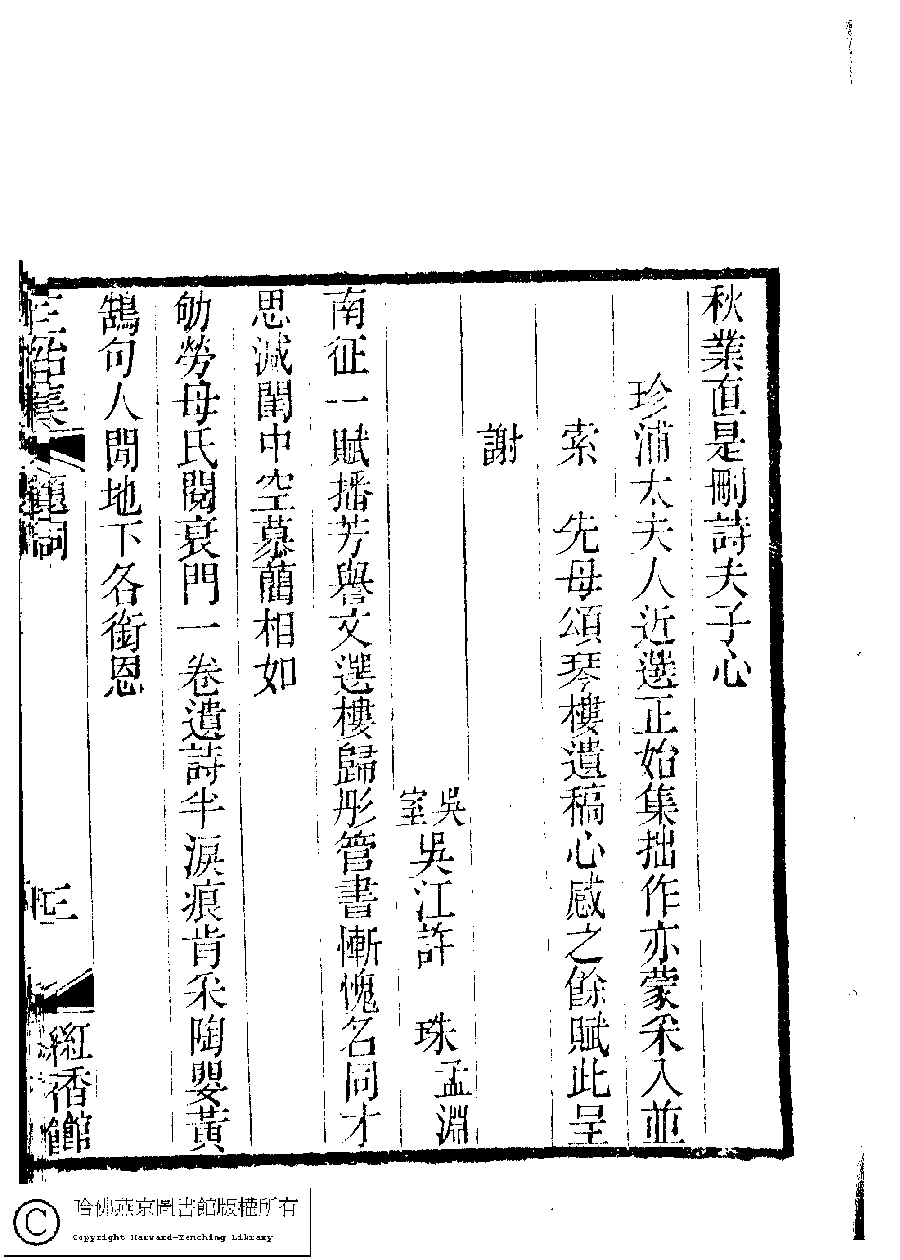 秋業直是刪詩夫子心
珍浦太夫人近選正始集拙作亦蒙采入並
索　先母頌琴樓遺稿心感之餘賦此呈
謝
吳室吳江許　珠孟淵
南征一賦播芳譽文選樓歸彤管書慚愧名同才
思減閨中空慕藺相如
劬勞母氏閱衰門一卷遺詩半淚痕肯采陶嬰黃
鵠句人間地下各銜恩
正始集
題詞
三
紅香館
哈佛燕京圖書館版權所有
Copyright Harvard-Yenching Library